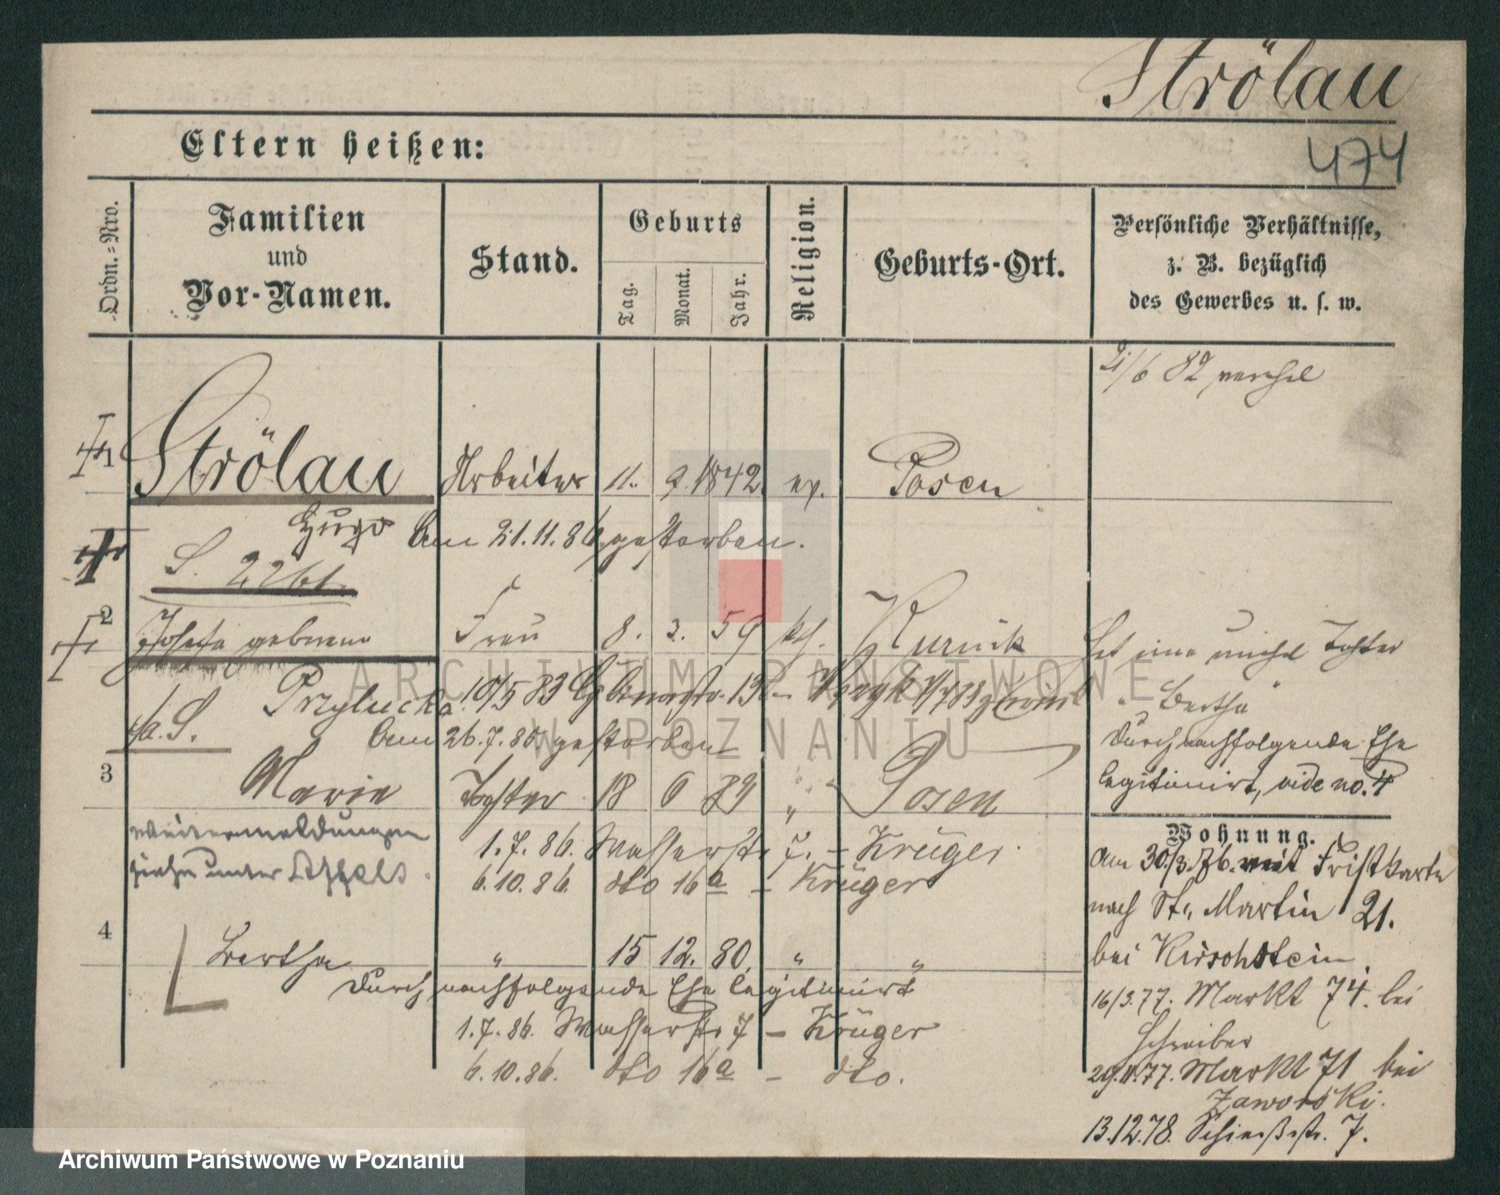 Strölau
Eltern heißen:
474
Ordn.-Nro.
Familien
und
Vor-Namen.
Stand.
Geburts
Tag.
Monat.
Jahr.
Religion.
Geburts-Ort.
Persönliche Verhältnisse,
z. B. bezüglich
des Gewerbes u. s. w.
21/6 82
1 Strölau Arbeiter 11. 9. 1842. ev. Posen
Hugo Am 21.11.86 gestorben.
S. 2261.
2 Josefa geborene Frau 8. 3. 59 kth. Kurnik
Przylucka 10/5 83
S. Am 26.7.80 gestorben
Hat eine unehel Tochter
"Bertha"
durch nachfolgende Ehe
legitimirt, vide no. 4
3 Marie Tochter 18 6 83 " Posen
Weitermeldungen 1.7.86. Wasserstr. 7. – Krüger.
siehe unter 6.10.86. dto 16a – Krüger
4 Bertha " 15 12. 80. " "
durch nachfolgende Ehe legitimirt
1.7.86. Wasserstr. 7 – Krüger
6.10.86. dto 16a – dto.
Wohnung.
Am 30/3.76. mit Fristkarte
nach St. Martin 21.
bei Kirschstein
16/3.77. Markt 74. bei
Schreiber
29.11.77. Markt 71 bei
Zaworski.
13.12.78. Schießstr. 7.
ARCHIWUM PAŃSTWOWE
W POZNANIU
Archiwum Państwowe w Poznaniu